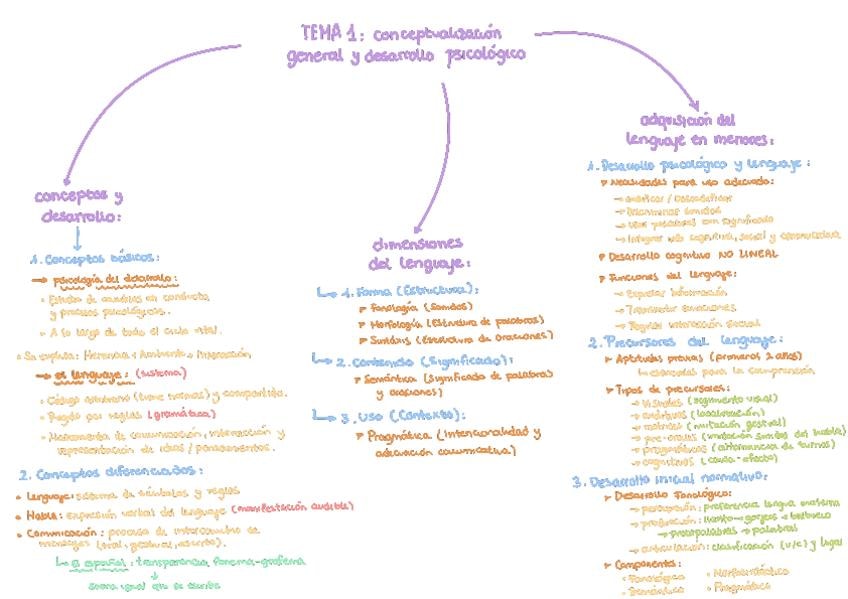 TEMA 1: conceptualización
general y desarrollo psicológico
conceptos y
desarrollo:
1. Conceptos básicos:
psicología del desarrollo:
Estudio de cambios en conducta
y procesos psicológicos.
A lo largo de todo el ciclo vital.
Se explica: Herencia + Ambiente + Interacción
el lenguaje: (sistema)
Código arbitrario (tiene normas) y compartido.
Regido por reglas (gramática)
Herramienta de comunicación, interacción y
representación de ideas / pensamientos.
2. Conceptos diferenciados:
Lenguaje: sistema de símbolos y reglas
Habla: expresión verbal del lenguaje (manifestación audible)
Comunicación: proceso de intercambio de
mensajes (oral, gestual, escrito).
El español: transparencia fonema-grafema
suena igual que se escribe
dimensiones
del lenguaje:
1. Forma (Estructura):
Fonología (Sonidos)
Morfología (Estructura de palabras)
Sintaxis (Estructura de oraciones)
2. Contenido (Significado):
Semántica (Significado de palabras
y oraciones)
3. Uso (Contexto):
Pragmática (Intencionalidad y
adecuación comunicativa)
adquisición del
lenguaje en menores:
1. Desarrollo psicológico y lenguaje:
Necesidades para uso adecuado:
Codificar / Decodificar
Discriminar sonidos
Usar palabras con significado
Integrar uso cognitivo, social y comunicativo
Desarrollo cognitivo NO LINEAL
Funciones del lenguaje:
Expresar información
Transmitir emociones
Regular interacción social
2. Precursores del lenguaje:
Aptitudes previas (primeros 2 años)
esenciales para la comprensión
Tipos de precursores:
Visuales (seguimiento visual)
auditivos (localización)
motores (imitación gestual)
pre-orales (variación sonidos del habla)
pragmáticos (alternancia de turnos)
cognitivos (causa-efecto)
3. Desarrollo inicial normativo:
Desarrollo fonológico:
percepción: preferencia lengua materna
producción: llanto → gorjeos → balbuceo
→ protopalabras → palabras
articulación: clasificación (v/c) y lugar
Componentes:
Fonológico
Morfosintáctico
Semántico
Pragmático